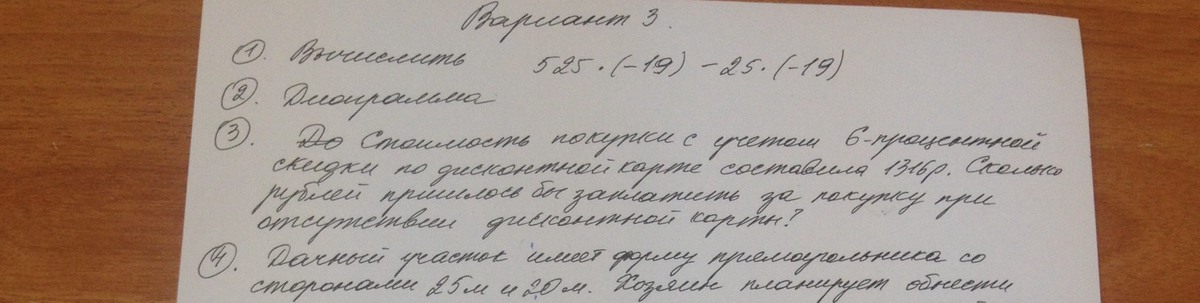 Вариант 3.
1. Вычислить 525·(-19) - 25·(-19)
2. Диаграмма
3. До Стоимость покупки с учетом 6-процентной
скидки по дисконтной карте составила 1316р. Сколько
рублей пришлось бы заплатить за покупку при
отсутствии дисконтной карты?
4. Дачный участок имеет форму прямоугольника со
сторонами 25м и 20м. Хозяин планирует обнести